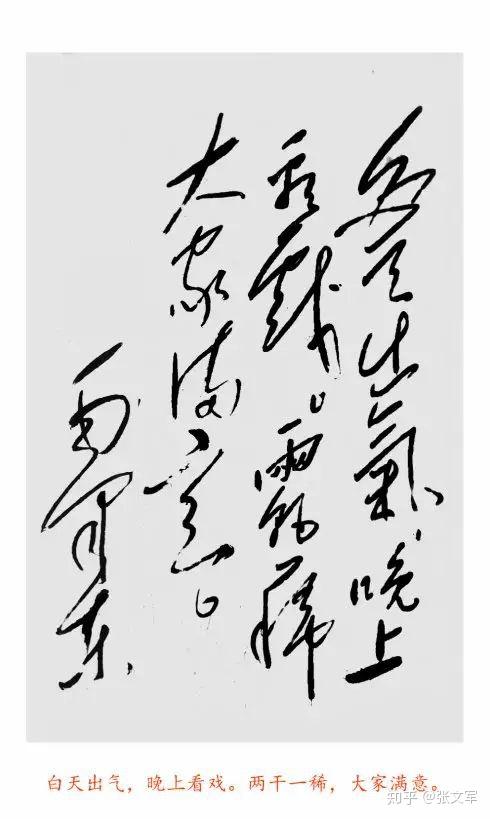 白天出氣，晚上
看戲。兩乾一稀
大家满意。
毛泽东
白天出气，晚上看戏。两干一稀，大家满意。
知乎 @张文军